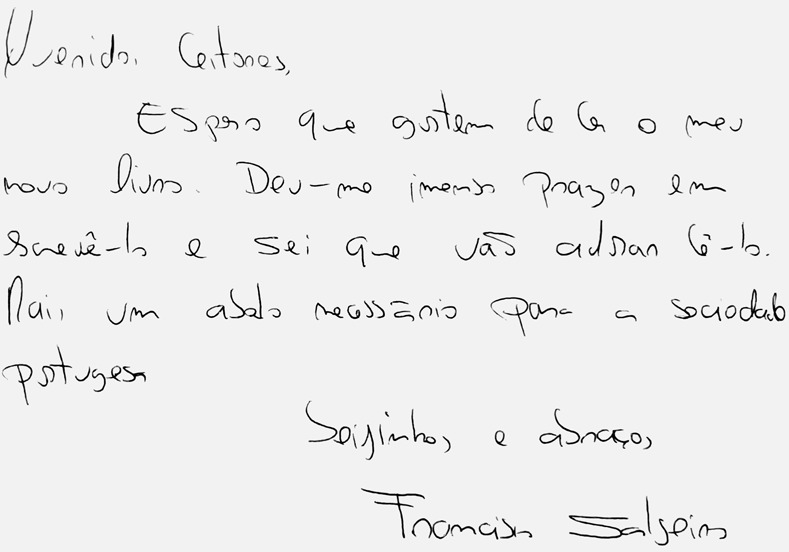 Queridos Leitores,
Espero que gostem de ler o meu
novo livro. Deu-me imenso prazer em
escrevê-lo e sei que vão adorar lê-lo.
Mais um abalo necessário para a sociedade
portuguesa
Beijinhos e abraços,
Francisco Salgueiro